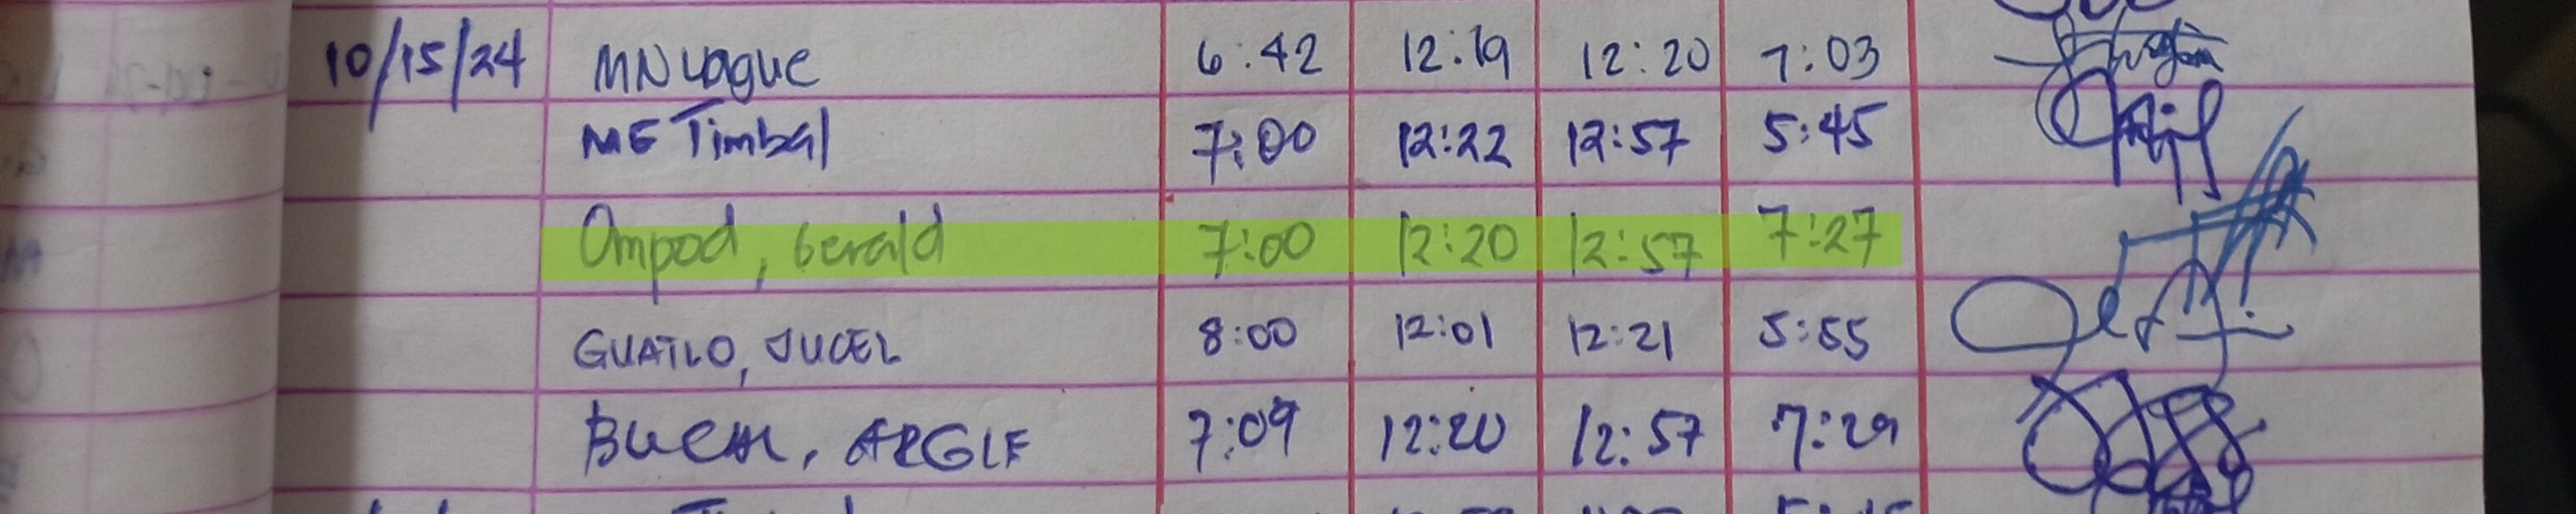 10/15/24 MN Logue 6:42 12:19 12:20 7:03
ME Timbal 7:00 12:22 12:57 5:45
Ompod, Gerald 7:00 12:20 12:57 7:27
GUATLO, JUCEL 8:00 12:01 12:21 5:55
ARGIE 7:09 12:20 12:57 7:29